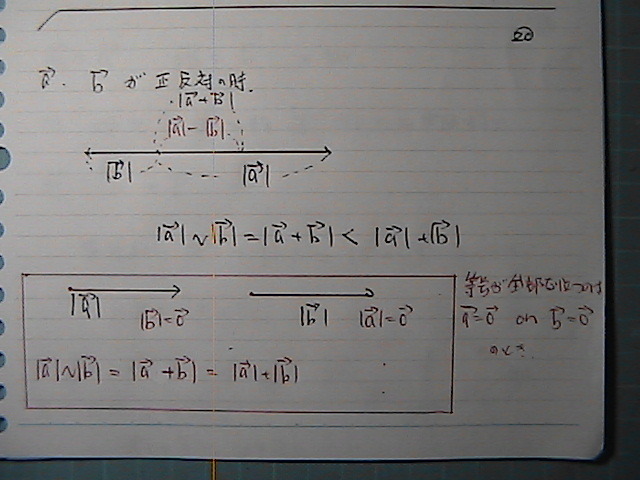 20
a⃗, b⃗ が正反対の時.
|a⃗+b⃗|
|a⃗|-|b⃗|
|b⃗| |a⃗|
|a⃗|~|b⃗|=|a⃗+b⃗|<|a⃗|+|b⃗|
|a⃗| |b⃗|=0⃗ |b⃗| |a⃗|=0⃗
|a⃗|~|b⃗|=|a⃗+b⃗|=|a⃗|+|b⃗|
等号が全部
a⃗=0⃗ or b⃗=0⃗
のとき.